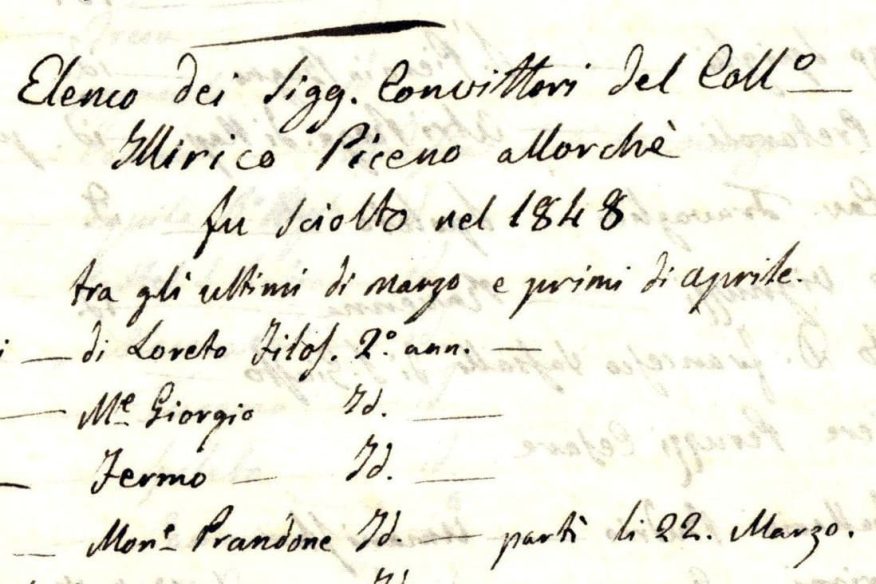 Elenco dei Sigg. Convittori del Coll.º
Illirico Piceno allorchè
fu sciolto nel 1848
tra gli ultimi di marzo e primi di aprile.
i — di Loreto Filos. 2.º ann. —
— M.e Giorgio Id. —
— Fermo — Id. —
— Mon.e Prandone Id. — partì li 22. Marzo.
Id.